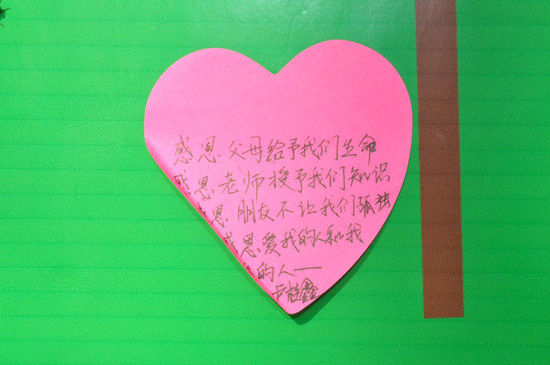 感恩父母给予我们生命
感恩老师授予我们知识
恩朋友不让我们孤独
感恩爱我的人和我
的人——